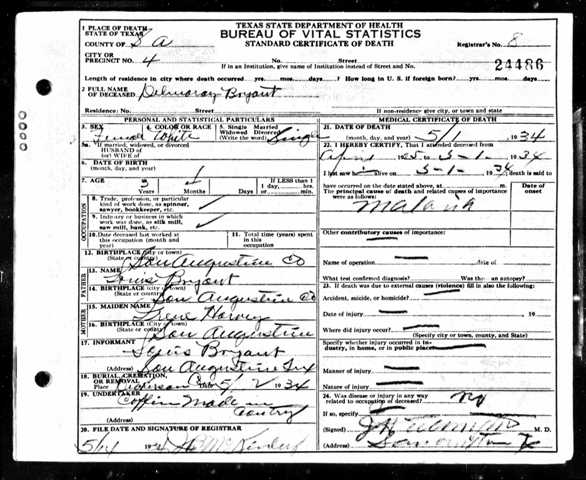 TEXAS STATE DEPARTMENT OF HEALTH
BUREAU OF VITAL STATISTICS
STANDARD CERTIFICATE OF DEATH
1 PLACE OF DEATH
STATE OF TEXAS
COUNTY OF S A
CITY OR
PRECINCT NO. 4 No. Street
Registrar's No. 8
24486
If in an Institution, give name of Institution instead of Street and No.
Length of residence in city where death occurred yrs. mos. days. How long in U. S. if foreign born? yrs. mos. days.
2 FULL NAME
OF DECEASED Bryant
Residence: No. Street If non-residence give city, or town and state
PERSONAL AND STATISTICAL PARTICULARS
3. SEX 4. COLOR OR RACE 5. Single Married
Widowed Divorced
(Write the word) Single
Female White
5a. If married, widowed, or divorced
HUSBAND of
(or) WIFE of
6. DATE OF BIRTH
(month, day, and year)
7. AGE IF LESS THAN 1
3
1 day, hrs. min.
OCCUPATION
8. Trade, profession, or particular
kind of work done, as spinner,
sawyer, bookkeeper, etc.
9. Industry or business in which
work was done, as silk mill,
saw mill, bank, etc.
10. Date deceased last worked at
this occupation (month and
year)
11. Total time (years) spent
in this
occupation
12. BIRTHPLACE (city or town)
(State or county) San Augustine Co
FATHER
13. NAME
Bryant
14. BIRTHPLACE (city or town)
(State or county) San Augustine Co
MOTHER
15. MAIDEN NAME
Harvey
16. BIRTHPLACE (city or town)
(State or county) San Augustine
17. INFORMANT
Bryant
(Address) San Augustine Tex
18. BURIAL, CREMATION,
OR REMOVAL
Place Date 5/2 1934
19. UNDERTAKER
(Address) Coffin Made in
Country
20. FILE DATE AND SIGNATURE OF REGISTRAR
5/14 193
MEDICAL CERTIFICATE OF DEATH
21. DATE OF DEATH
(month, day, and year) 5/1 1934
22. I HEREBY CERTIFY, That I attended deceased from
April 1934
I last saw 1934, death is said to
have occurred on the date stated above, at m.
The principal cause of death and related causes of importance
were as follows:
Date of
onset
Malaria
Other contributory causes of importance:
Name of operation date of
What test confirmed diagnosis? Was there an autopsy?
23. If death was due to external causes (violence) fill in also the following:
Accident, suicide, or homicide?
Date of injury 19
Where did injury occur?
(Specify city or town, county, and State)
Specify whether injury occurred in In-
dustry, in home, or in public place
Manner of injury
Nature of injury
24. Was disease or injury in any way
related to occupation of deceased? No
If so, specify
(Signed) M. D.
(Address)